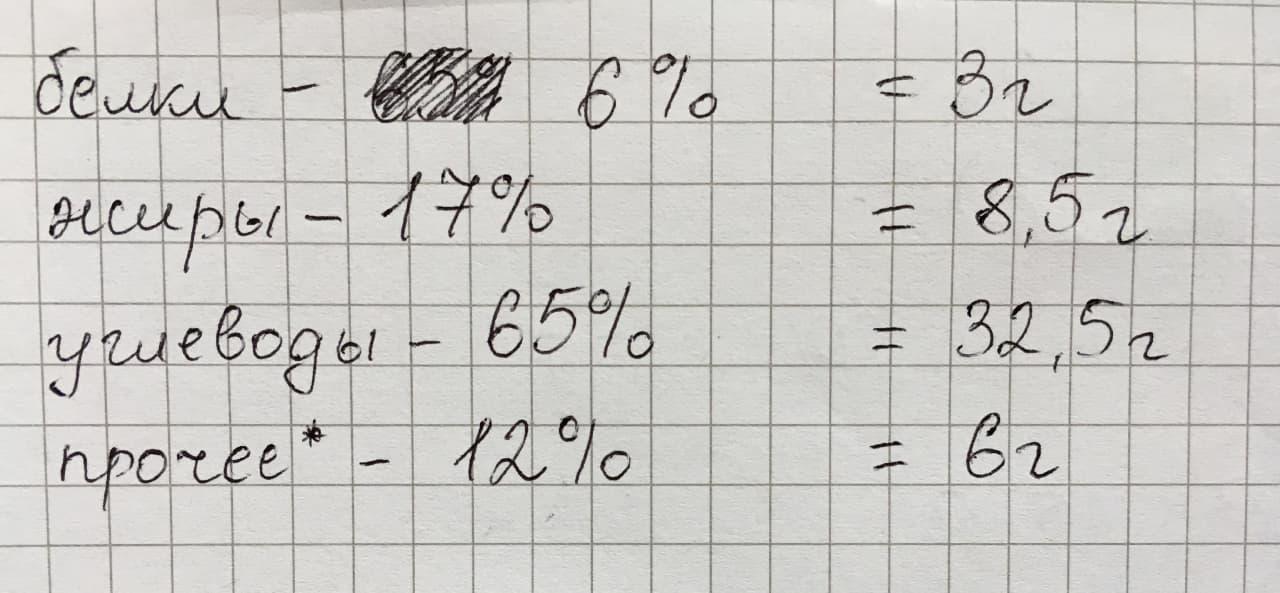 белки – 6% = 3г
жиры – 17% = 8,5г
углеводы – 65% = 32,5г
прочее* – 12% = 6г